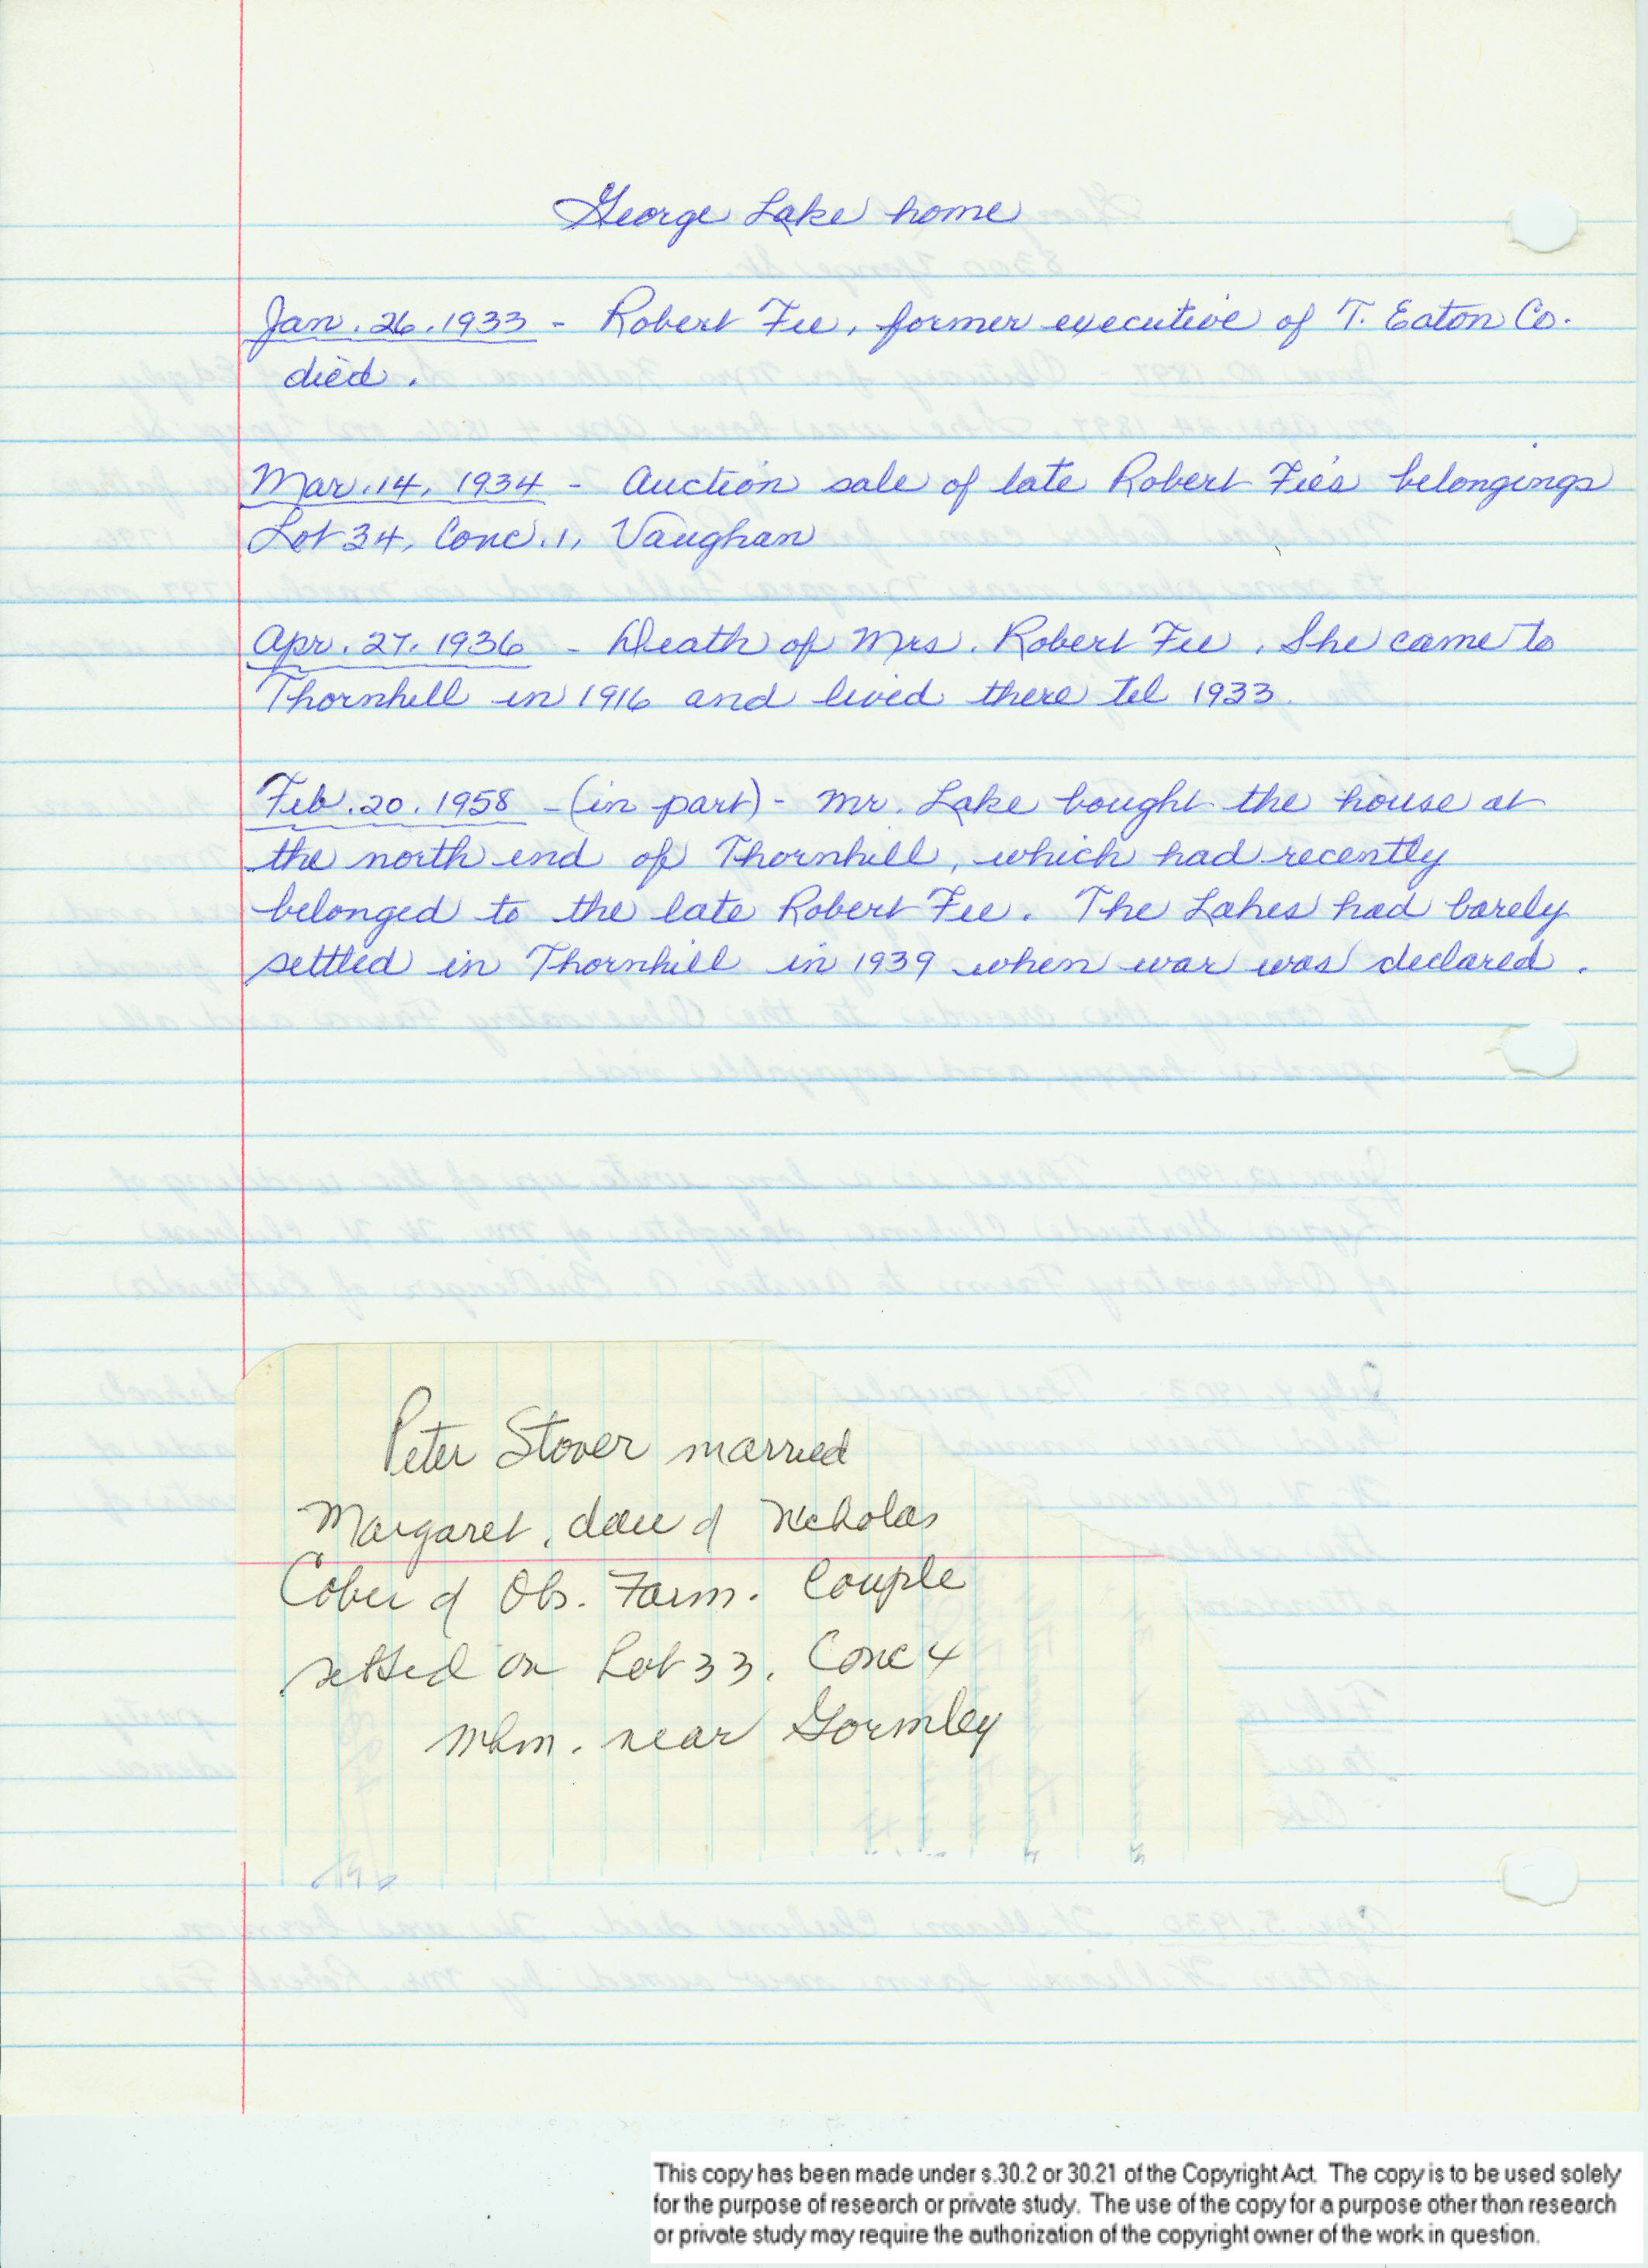 George Lake home
Jan. 26. 1933 - Robert Fee, former executive of T. Eaton Co.
died.
Mar. 14, 1934 - Auction sale of late Robert Fee's belongings
Lot 34, Conc. 1, Vaughan
Apr. 27. 1936 - Death of Mrs. Robert Fee. She came to
Thornhill in 1916 and lived there til 1933.
Feb. 20. 1958 - (in part) - Mr. Lake bought the house at
the north end of Thornhill, which had recently
belonged to the late Robert Fee. The Lakes had barely
settled in Thornhill in 1939 when war was declared.
Peter Stover married
Margaret, dau of Nicholas
Cober of Obs. Farm. Couple
settled on Lot 33, Conc 4
Mkm. near Gormley
This copy has been made under s.30.2 or 30.21 of the Copyright Act. The copy is to be used solely
for the purpose of research or private study. The use of the copy for a purpose other than research
or private study may require the authorization of the copyright owner of the work in question.